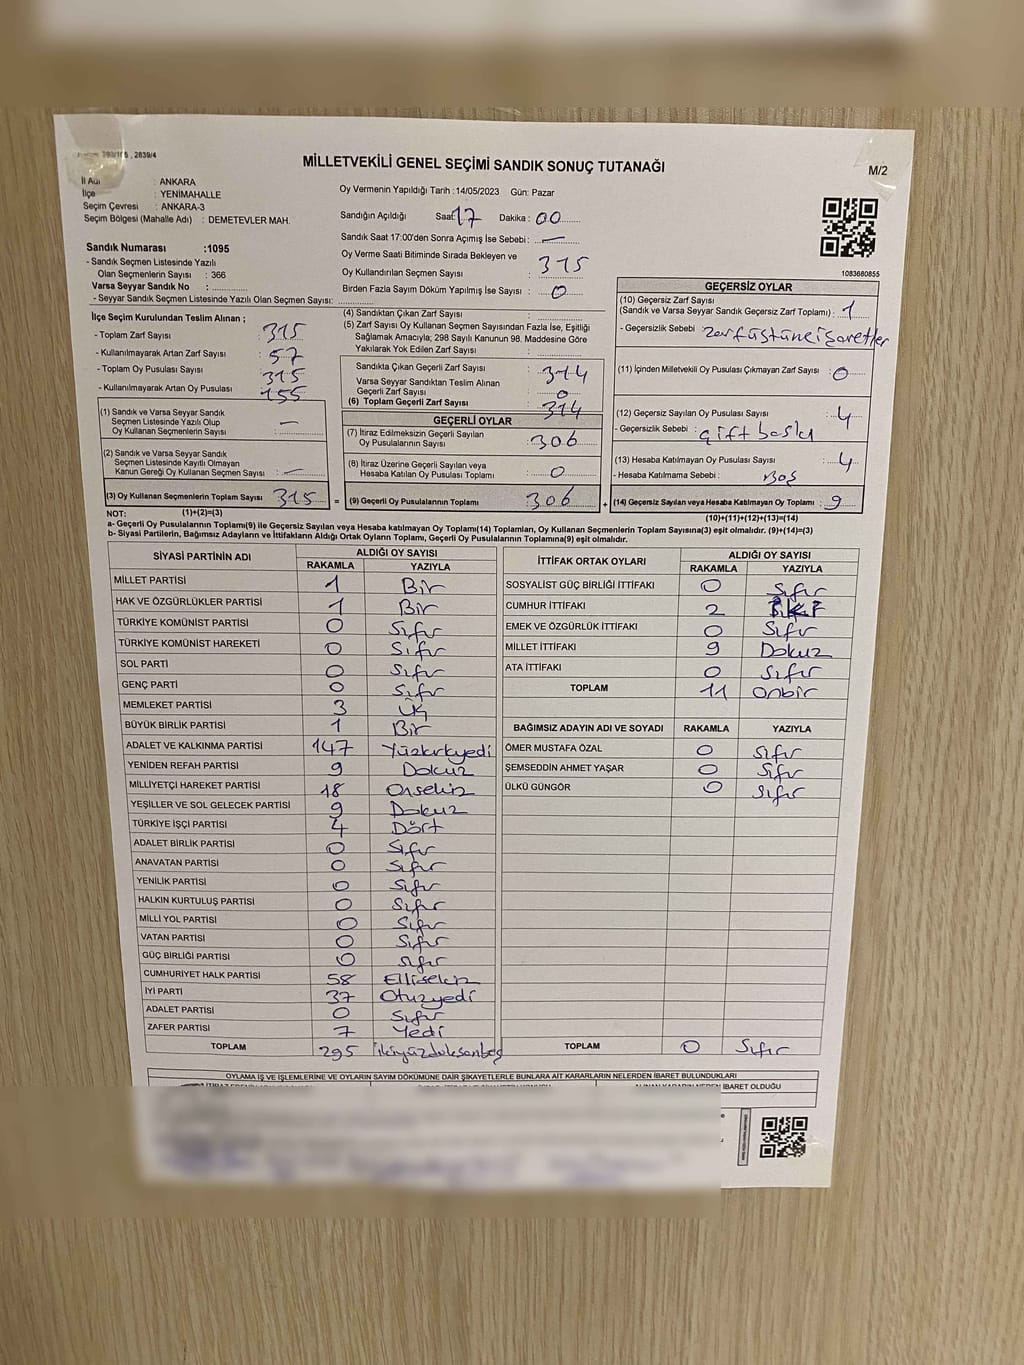 393/165 , 2839/4
MİLLETVEKİLİ GENEL SEÇİMİ SANDIK SONUÇ TUTANAĞI
M/2
İl Adı : ANKARA
İlçe : YENİMAHALLE
Seçim Çevresi : ANKARA-3
Seçim Bölgesi (Mahalle Adı) : DEMETEVLER MAH.
Sandık Numarası :1095
- Sandık Seçmen Listesinde Yazılı
Olan Seçmenlerin Sayısı : 366
Varsa Seyyar Sandık No :
- Seyyar Sandık Seçmen Listesinde Yazılı Olan Seçmen Sayısı:
Oy Vermenin Yapıldığı Tarih :14/05/2023 Gün: Pazar
Sandığın Açıldığı Saat: 17 Dakika : 00
Sandık Saat 17:00'den Sonra Açmış İse Sebebi : —
Oy Verme Saati Bitiminde Sırada Bekleyen ve
Oy Kullandırılan Seçmen Sayısı : 315
Birden Fazla Sayım Döküm Yapılmış İse Sayısı : 0
1083680855
İlçe Seçim Kurulundan Teslim Alınan ;
- Toplam Zarf Sayısı : 315
- Kullanılmayarak Artan Zarf Sayısı : 57
- Toplam Oy Pusulası Sayısı : 315
- Kullanılmayarak Artan Oy Pusulası : 155
(1) Sandık ve Varsa Seyyar Sandık
Seçmen Listesinde Yazılı Olup
Oy Kullanan Seçmenlerin Sayısı : —
(2) Sandık ve Varsa Seyyar Sandık
Seçmen Listesinde Kayıtlı Olmayan
Kanun Gereği Oy Kullanan Seçmen Sayısı : —
(3) Oy Kullanan Seçmenlerin Toplam Sayısı : 315 =
(4) Sandıktan Çıkan Zarf Sayısı :
(5) Zarf Sayısı Oy Kullanan Seçmen Sayısından Fazla İse, Eşitliği
Sağlamak Amacıyla; 298 Sayılı Kanunun 98. Maddesine Göre
Yakılarak Yok Edilen Zarf Sayısı :
Sandıkta Çıkan Geçerli Zarf Sayısı : 314
Varsa Seyyar Sandıktan Teslim Alınan
Geçerli Zarf Sayısı : 0
(6) Toplam Geçerli Zarf Sayısı : 314
GEÇERLİ OYLAR
(7) İtiraz Edilmeksizin Geçerli Sayılan
Oy Pusulalarının Sayısı : 306
(8) İtiraz Üzerine Geçerli Sayılan veya
Hesaba Katılan Oy Pusulası Toplamı : 0
(9) Geçerli Oy Pusulalarının Toplamı : 306 +
GEÇERSİZ OYLAR
(10) Geçersiz Zarf Sayısı
(Sandık ve Varsa Seyyar Sandık Geçersiz Zarf Toplamı) : 1
- Geçersizlik Sebebi : zarf üstüne işaretler
(11) İçinden Milletvekili Oy Pusulası Çıkmayan Zarf Sayısı : 0
(12) Geçersiz Sayılan Oy Pusulası Sayısı : 4
- Geçersizlik Sebebi : çift baskı
(13) Hesaba Katılmayan Oy Pusulası Sayısı : 4
- Hesaba Katılmama Sebebi : Boş
(14) Geçersiz Sayılan veya Hesaba Katılmayan Oy Toplamı : 9
NOT: (1)+(2)=(3) (10)+(11)+(12)+(13)=(14)
a- Geçerli Oy Pusulalarının Toplamı(9) ile Geçersiz Sayılan veya Hesaba katılmayan Oy Toplamı(14) Toplamları, Oy Kullanan Seçmenlerin Toplam Sayısına(3) eşit olmalıdır. (9)+(14)=(3)
b- Siyasi Partilerin, Bağımsız Adayların ve İttifakların Aldığı Ortak Oyların Toplamı, Geçerli Oy Pusulalarının Toplamına(9) eşit olmalıdır.
SİYASİ PARTİNİN ADI ALDIĞI OY SAYISI
RAKAMLA YAZIYLA
MİLLET PARTİSİ 1 Bir
HAK VE ÖZGÜRLÜKLER PARTİSİ 1 Bir
TÜRKİYE KOMÜNİST PARTİSİ 0 Sıfır
TÜRKİYE KOMÜNİST HAREKETİ 0 Sıfır
SOL PARTİ 0 Sıfır
GENÇ PARTİ 0 Sıfır
MEMLEKET PARTİSİ 3 Üç
BÜYÜK BİRLİK PARTİSİ 1 Bir
ADALET VE KALKINMA PARTİSİ 147 Yüzkırkyedi
YENİDEN REFAH PARTİSİ 9 Dokuz
MİLLİYETÇİ HAREKET PARTİSİ 18 Onsekiz
YEŞİLLER VE SOL GELECEK PARTİSİ 9 Dokuz
TÜRKİYE İŞÇİ PARTİSİ 4 Dört
ADALET BİRLİK PARTİSİ 0 Sıfır
ANAVATAN PARTİSİ 0 Sıfır
YENİLİK PARTİSİ 0 Sıfır
HALKIN KURTULUŞ PARTİSİ 0 Sıfır
MİLLİ YOL PARTİSİ 0 Sıfır
VATAN PARTİSİ 0 Sıfır
GÜÇ BİRLİĞİ PARTİSİ 0 Sıfır
CUMHURİYET HALK PARTİSİ 58 Ellisekiz
İYİ PARTİ 37 Otuzyedi
ADALET PARTİSİ 0 Sıfır
ZAFER PARTİSİ 7 Yedi
TOPLAM 295 ikiyüzdoksanbeş
İTTİFAK ORTAK OYLARI ALDIĞI OY SAYISI
RAKAMLA YAZIYLA
SOSYALİST GÜÇ BİRLİĞİ İTTİFAKI 0 Sıfır
CUMHUR İTTİFAKI 2
EMEK VE ÖZGÜRLÜK İTTİFAKI 0 Sıfır
MİLLET İTTİFAKI 9 Dokuz
ATA İTTİFAKI 0 Sıfır
TOPLAM 11 Onbir
BAĞIMSIZ ADAYIN ADI VE SOYADI RAKAMLA YAZIYLA
ÖMER MUSTAFA ÖZAL 0 Sıfır
ŞEMSEDDİN AHMET YAŞAR 0 Sıfır
ÜLKÜ GÜNGÖR 0 Sıfır
TOPLAM 0 Sıfır
OYLAMA İŞ VE İŞLEMLERİNE VE OYLARIN SAYIM DÖKÜMÜNE DAİR ŞİKAYETLERLE BUNLARA AİT KARARLARIN NELERDEN İBARET BULUNDUKLARI
İBARET OLDUĞU